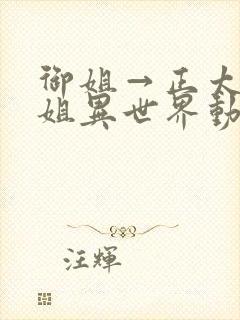 御姐→正太
姐異世界動
汪輝